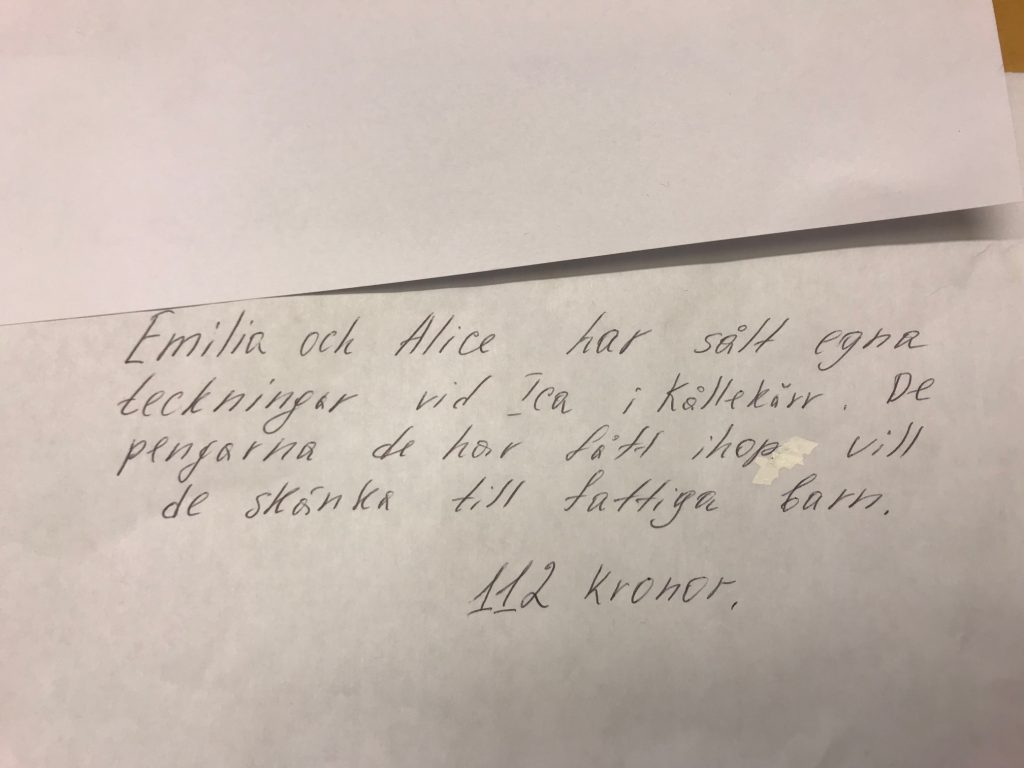 Emilia och Alice har sålt egna
teckningar vid Ica i Kållekärr. De
pengarna de har fått ihop vill
de skänka till fattiga barn.
112 kronor.